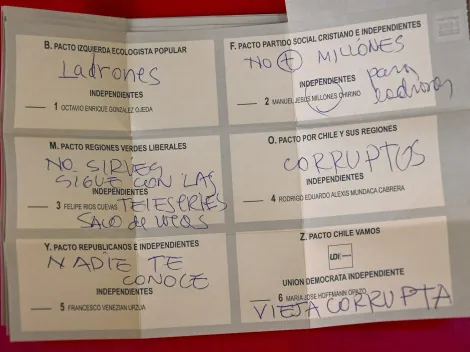 B. PACTO IZQUIERDA ECOLOGISTA POPULAR
Ladrones
INDEPENDIENTES
1 OCTAVIO ENRIQUE GONZALEZ OJEDA
F. PACTO PARTIDO SOCIAL CRISTIANO E INDEPENDIENTES
NO + MILLONES
INDEPENDIENTES
para
2 MANUEL JESUS MILLONES CHIRINO
ladrones
M. PACTO REGIONES VERDES LIBERALES
NO SIRVES
SIGUE CON LAS
INDEPENDIENTES
TELESERIES
3 FELIPE RIOS CUEVAS
SACO de
O. PACTO POR CHILE Y SUS REGIONES
CORRUPTOS
INDEPENDIENTES
4 RODRIGO EDUARDO ALEXIS MUNDACA CABRERA
Y. PACTO REPUBLICANOS E INDEPENDIENTES
NADIE TE
CONOCE
INDEPENDIENTES
5 FRANCESCO VENEZIAN URZUA
Z. PACTO CHILE VAMOS
UDI
UNION DEMOCRATA INDEPENDIENTE
6 MARIA JOSE HOFFMANN OPAZO
VIEJA CORRUPTA